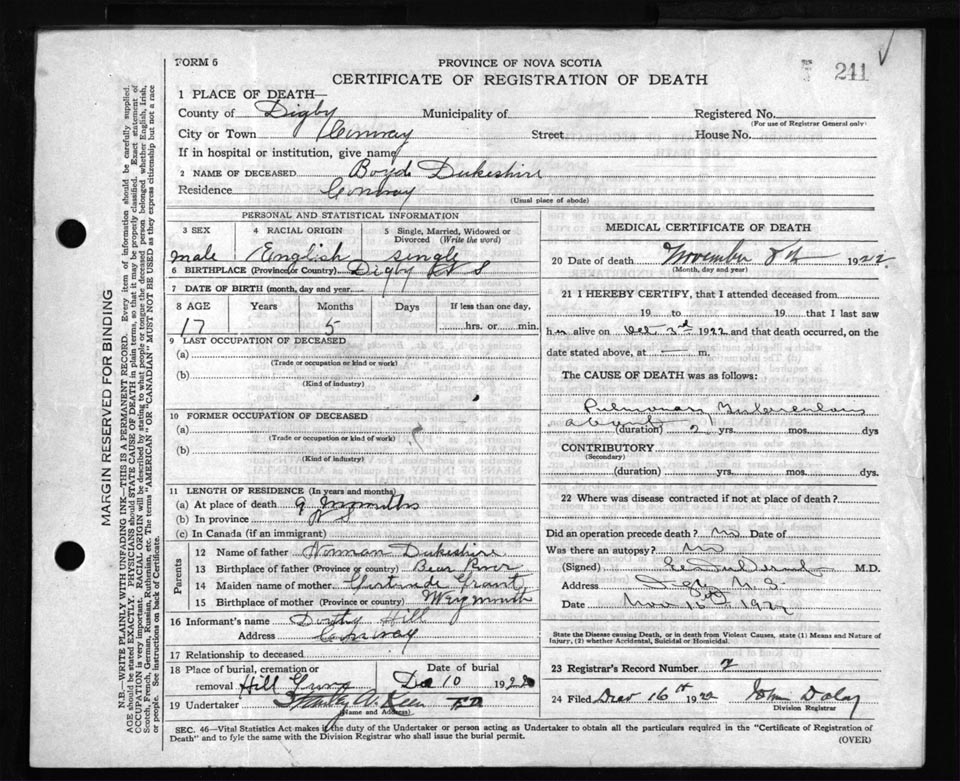 FORM 6
PROVINCE OF NOVA SCOTIA
CERTIFICATE OF REGISTRATION OF DEATH
241
1 PLACE OF DEATH—
County of Digby Municipality of Registered No.
(For use of Registrar General only)
City or Town Conway Street House No.
If in hospital or institution, give name
2 NAME OF DECEASED Boyd Dukeshire
Residence Conway
(Usual place of abode)
MARGIN RESERVED FOR BINDING
N.B.—WRITE PLAINLY WITH UNFADING INK—THIS IS A PERMANENT RECORD. Every item of information should be carefully supplied.
AGE should be stated EXACTLY. PHYSICIANS should STATE CAUSE OF DEATH in plain terms, so that it may be properly classified. Exact statement of
OCCUPATION is very important. RACIAL ORIGIN will be described by stating to what people or tongue the deceased person belonged whether English, Irish,
Scotch, French, German, Russian, Ruthenian, etc. The terms "AMERICAN" OR "CANADIAN" MUST NOT BE USED as they express citizenship but not a race
or people. See instructions on back of Certificate.
PERSONAL AND STATISTICAL INFORMATION
3 SEX 4 RACIAL ORIGIN 5 Single, Married, Widowed or
Divorced (Write the word)
male English single
6 BIRTHPLACE (Province or Country) Digby N S
7 DATE OF BIRTH (month, day and year
8 AGE Years Months Days If less than one day,
17 5 hrs. or min.
9 LAST OCCUPATION OF DECEASED
(a)
(Trade or occupation or kind or work)
(b)
(Kind of industry)
10 FORMER OCCUPATION OF DECEASED
(a)
(Trade or occupation or kind of work)
(b)
(Kind of industry)
11 LENGTH OF RESIDENCE (In years and months)
(a) At place of death 9 months
(b) In province
(c) In Canada (if an immigrant)
Parents
12 Name of father Norman Dukeshire
13 Birthplace of father (Province or country) Bear River
14 Maiden name of mother Gertrude Grant
15 Birthplace of mother (Province or country) Weymouth
16 Informant's name Hill
Address Conway
17 Relationship to deceased
18 Place of burial, cremation or Date of burial
removal Hill Grove 10 1922
19 Undertaker
(Name and Address)
MEDICAL CERTIFICATE OF DEATH
20 Date of death November 8th 1922
(Month, day and year)
21 I HEREBY CERTIFY, that I attended deceased from
19 to 19 that I last saw
him alive on Oct 3rd 1922 and that death occurred, on the
date stated above, at — m.
The CAUSE OF DEATH was as follows:
Pulmonary Tuberculosis
about
(duration) 2 yrs. mos. dys
CONTRIBUTORY
(Secondary)
(duration) yrs. mos. dys.
22 Where was disease contracted if not at place of death?
Did an operation precede death? no Date of
Was there an autopsy? no
(Signed) M.D.
Address Digby N.S.
Date Nov 1922
State the Disease causing Death, or in death from Violent Causes, state (1) Means and Nature of
Injury, (2) whether Accidental, Suicidal or Homicidal.
23 Registrar's Record Number 7
24 Filed 16th 1922 John Daley
Division Registrar
SEC. 46—Vital Statistics Act makes it the duty of the Undertaker or person acting as Undertaker to obtain all the particulars required in the "Certificate of Registration of
Death" and to fyle the same with the Division Registrar who shall issue the burial permit.
(OVER)